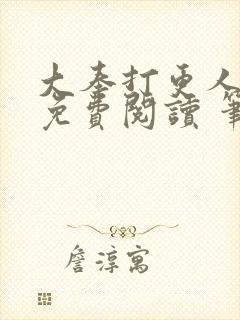 大奉打更人
免費閱讀 筆
詹淳寓